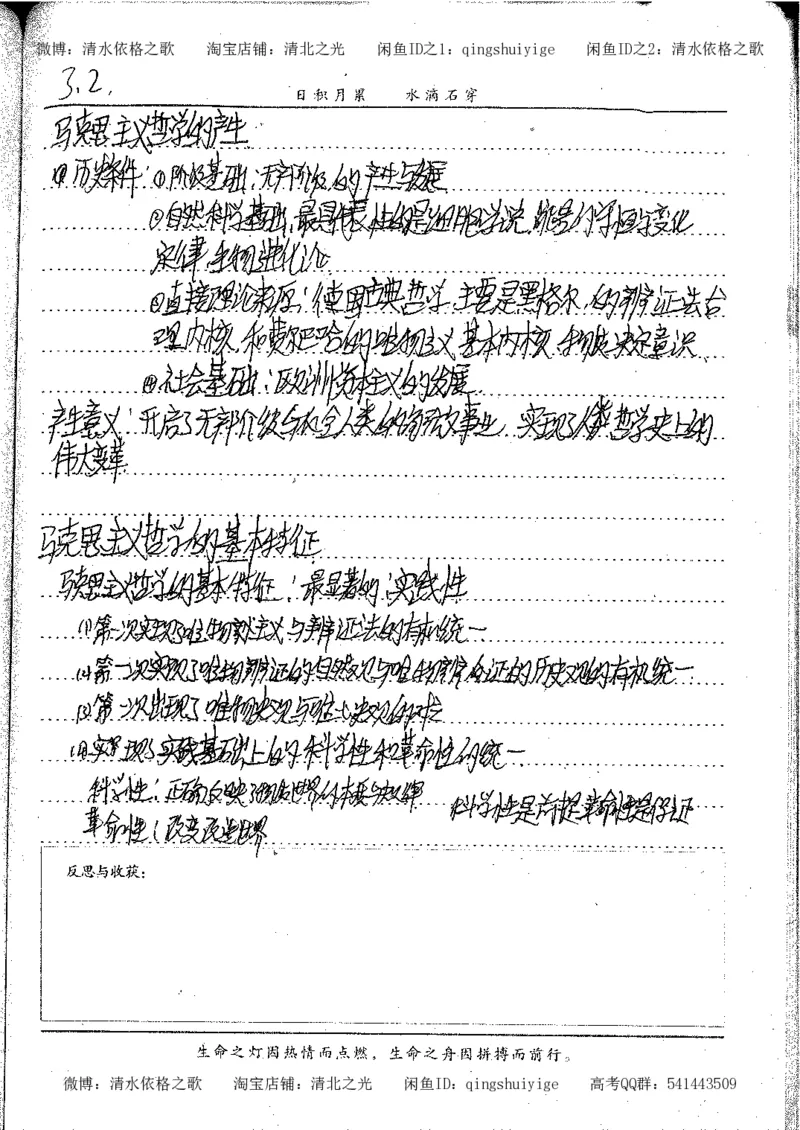 微博：清水依格之歌 淘宝店铺：清北之光 闲鱼ID之1：qingshuiyige 闲鱼ID之2：清水依格之歌
3.2.
日积月累 水滴石穿
马克思主义哲学的产生
历史条件：①阶级基础：无产阶级的产生与发展
②自然科学基础，最具代表性的是细胞学说，能量守恒与变化
定律，生物进化论
③直接理论来源：德国古典哲学，主要是黑格尔的辩证法合
理内核，和费尔巴哈的唯物主义基本内核，物质决定意识
④社会基础：欧洲资本主义的发展
产生意义：开启了无产阶级与和全人类的解放事业，实现了人类哲学史上的
伟大变革
马克思主义哲学的基本特征
马克思主义哲学的基本特征：最显著的：实践性
(1)第一次实现了唯物主义与辩证法的有机统一
(2)第一次实现了唯物辩证的自然观与唯物辩证的历史观的有机统一
(3)第一次出现了唯物史观与唯心史观的对立
(4)实现了实践基础上的科学性和革命性的统一
科学性：正确反映了物质世界的本质与规律
科学性是前提革命性是保证
革命性：改变改造世界
反思与收获：
生命之灯因热情而点燃，生命之舟因拼搏而前行。
微博：清水依格之歌 淘宝店铺：清北之光 闲鱼ID：qingshuiyige 高考QQ群：541443509